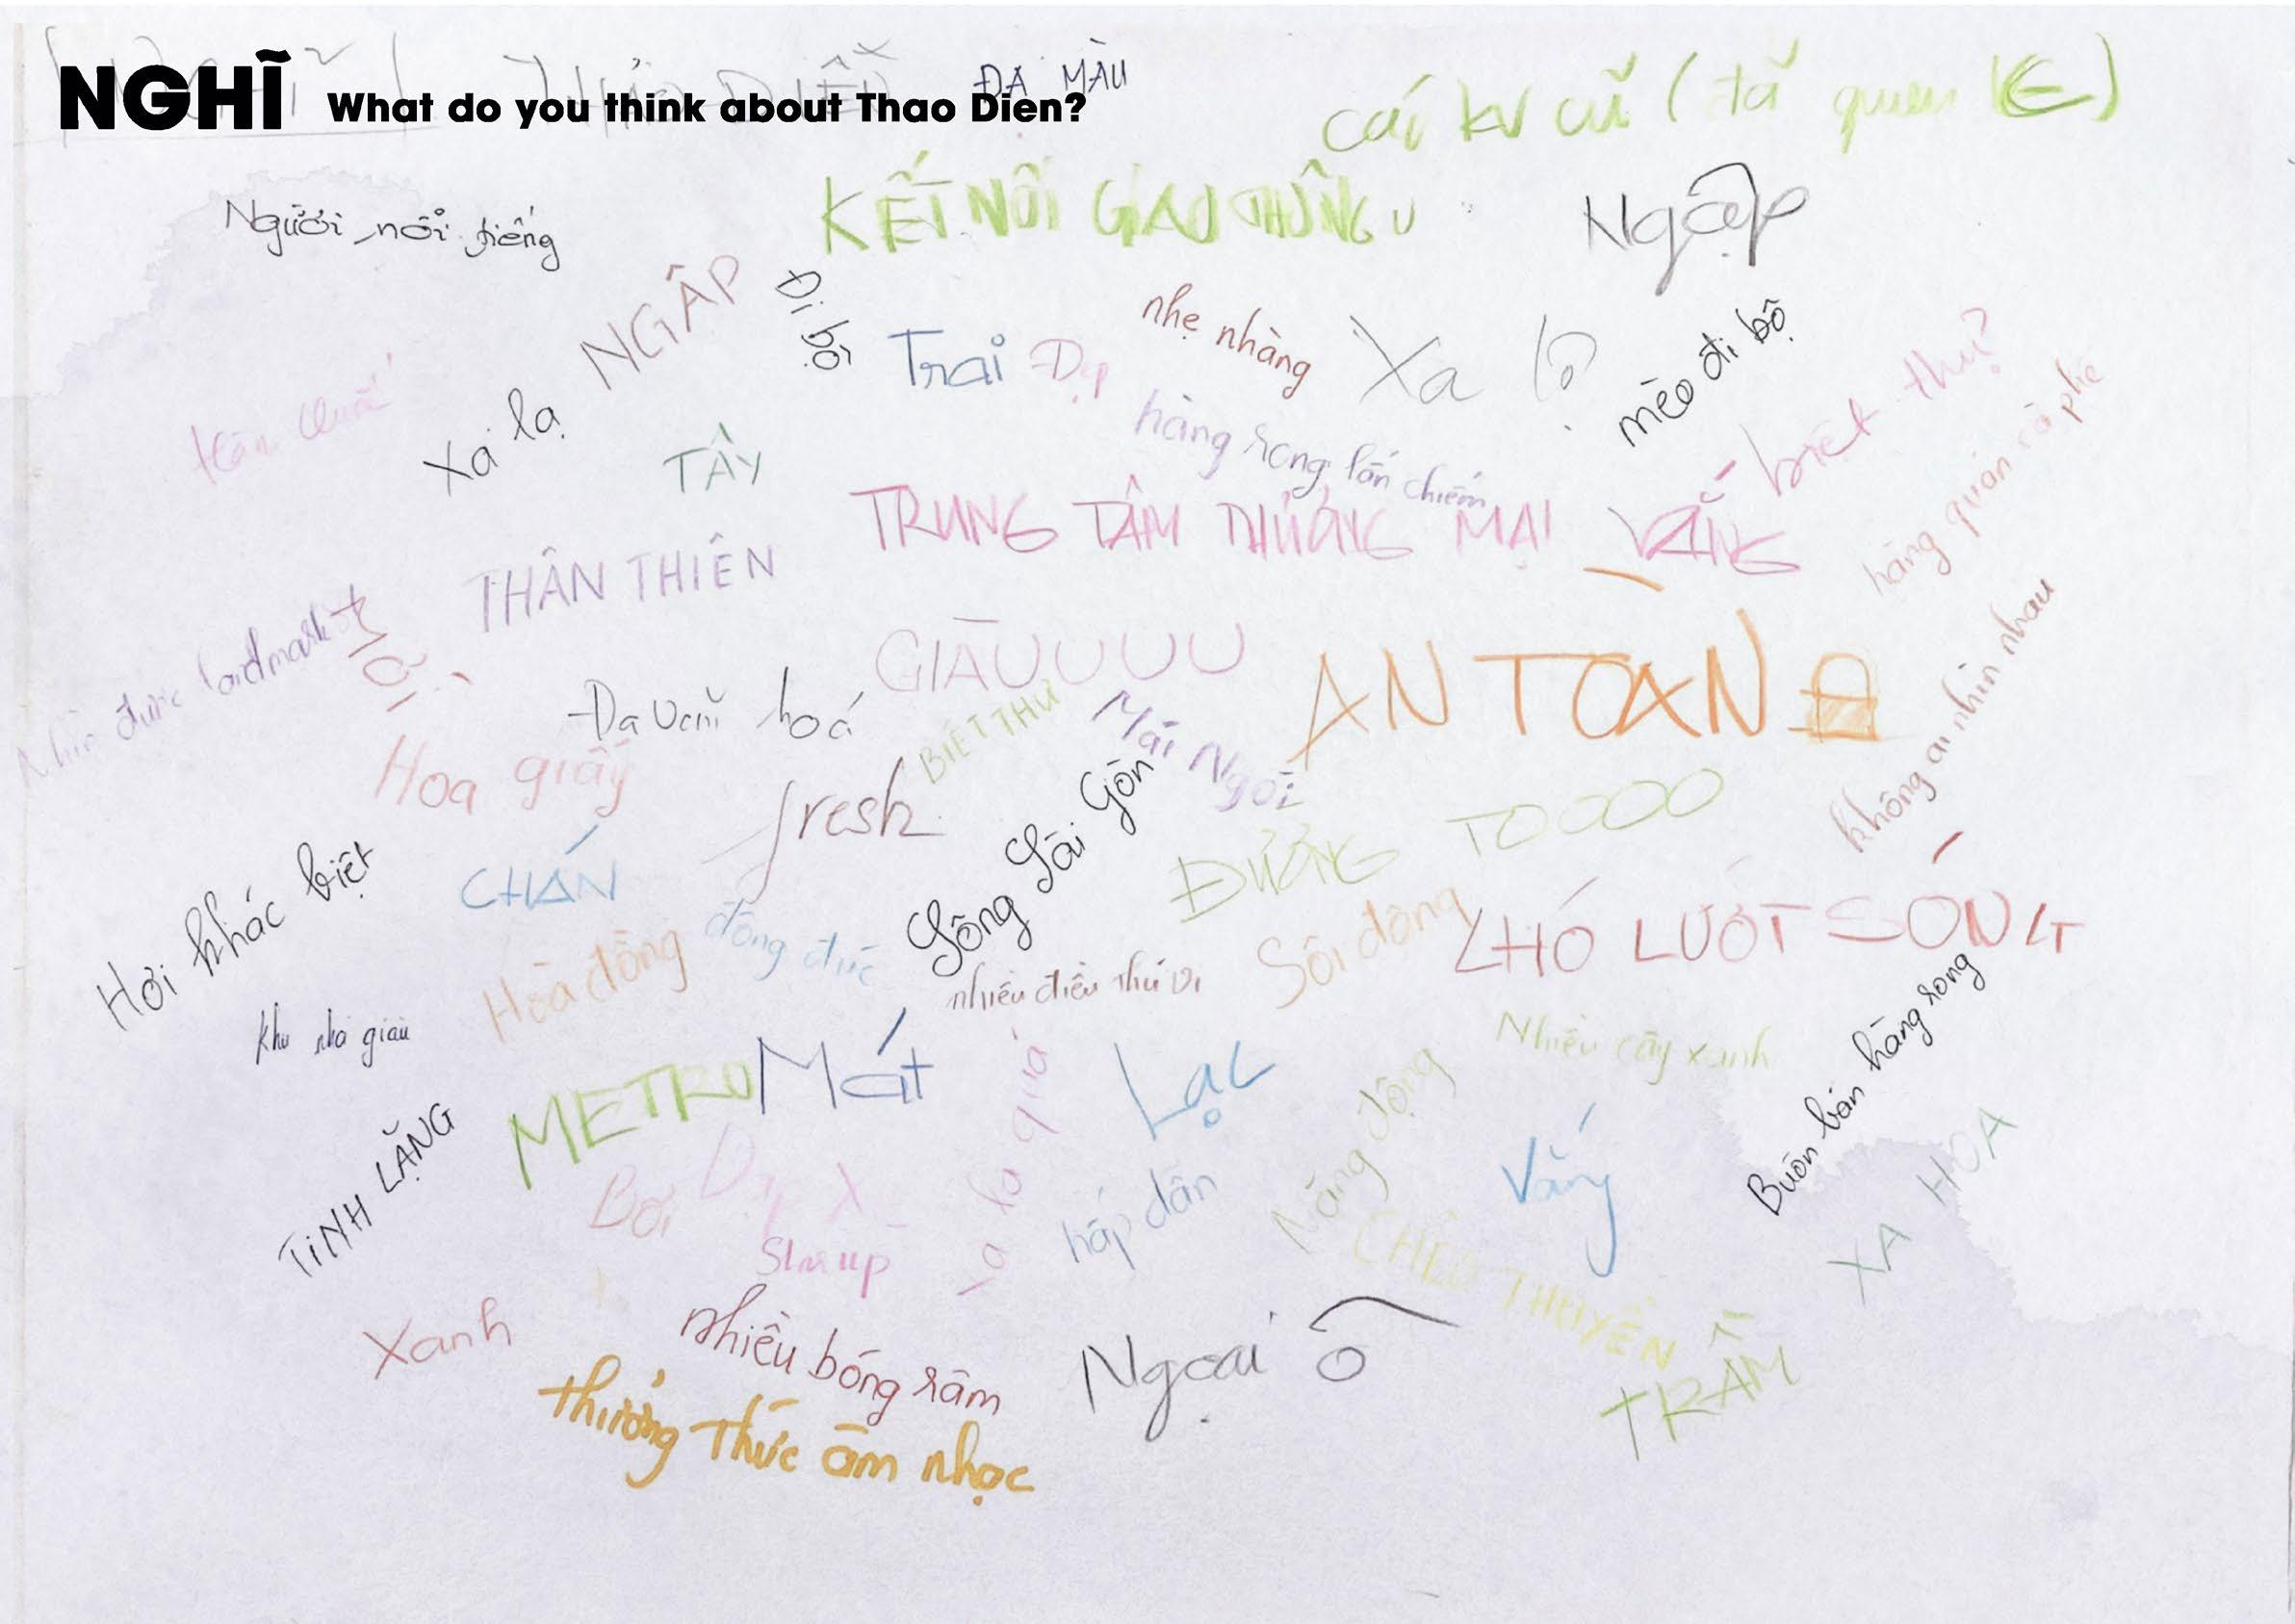 NGHĨ What do you think about Thao Dien?
ĐA MÀU
KẾT NỐI GIAO THÔNG
Người nổi tiếng
Ngập
NGẬP
Đi bộ
nhẹ nhàng
Trai Đẹp
Xa lộ
mèo đi bộ
biệt thự?
hàng quán cà phê
Xa lạ
TÂY
hàng rong lấn chiếm
TRUNG TÂM THƯƠNG MẠI
VẮNG
THÂN THIỆN
Nhìn được landmark
GIÀUUUU
AN TOÀN
không ai nhìn nhau
Đa văn hoá
BIỆT THỰ
Mái Ngói
Hoa giấy
fresh
Sông Sài Gòn
ĐƯỜNG TOOOO
CHÁN
Hơi khác biệt
Hoà đồng
đông đúc
nhiều điều thú vị
Sôi động
CHÓ LƯỚT SÓNG
khu nhà giàu
METRO
Mát
Lạc
Nhiều cây xanh
Buôn bán hàng rong
TĨNH LẶNG
Bơi
xa la quá
hấp dẫn
Năng động
Vắng
XA HOA
CHÈO THUYỀN
Xanh
nhiều bóng râm
Ngoại ô
TRẦM
thưởng thức âm nhạc